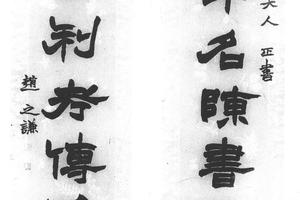 人 正書
名陳書
利孝傳
趙之謙